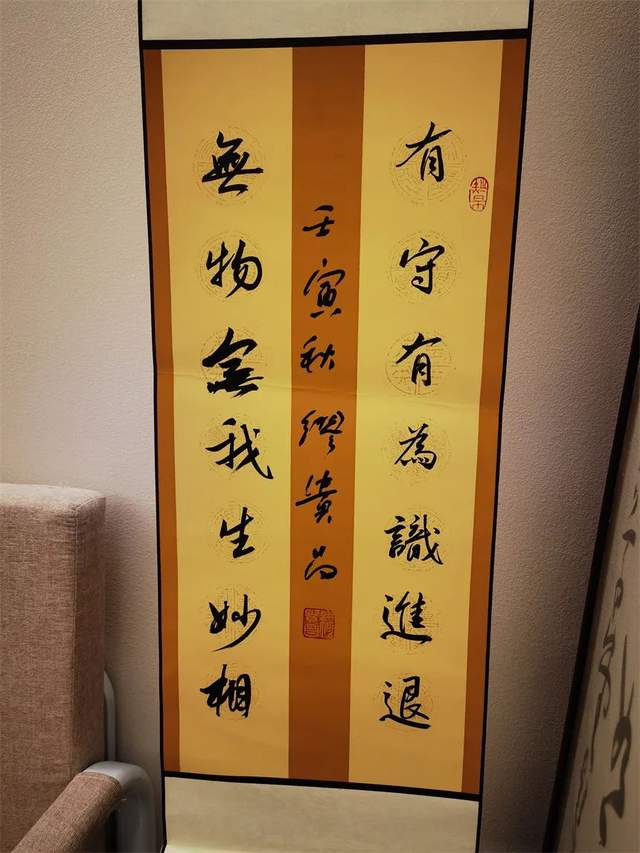 有守有為識進退
無物無我生妙相
壬寅秋繆貴昌